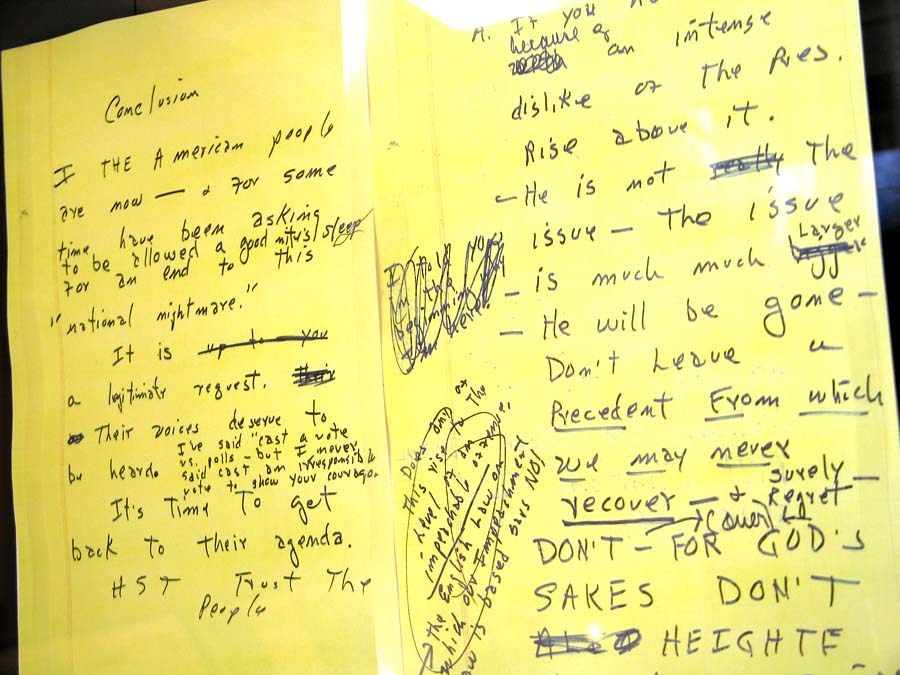 Conclusion
I THE American people
are now — & for some
time have been asking
to be allowed a good nite's sleep
for an end to this
"national nightmare."
It is up to you
a legitimate request.
Their voices deserve to
be heard. I've said "cast a vote
vs. polls - but I never
said cast an irresponsible
vote to show your courage.
It's Time To get
back to their agenda.
HST Trust The
People
A. If you
because of
an intense
dislike of The Pres.
Rise above it.
- He is not really The
issue - The issue
- is much much Larger
- He will be gone -
Don't Leave a
Precedent From which
we may never
recover - & Surely
Regret
DON'T - FOR GOD'S
SAKES DON'T
HEIGHTE
I told you
beginning
here
This Does any
level rise to The
impeachable offense.
The English Law on
which our Impeachment
Law is based says NO!